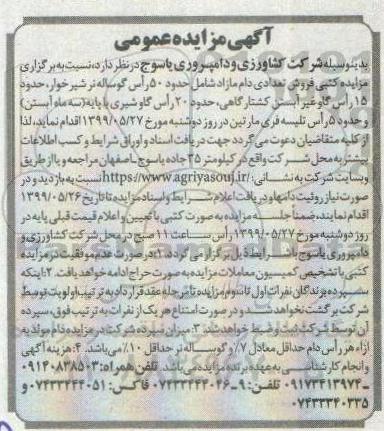 آگهی مزایده عمومی
بدینوسیله شرکت کشاورزی و دامپروری یاسوج در نظر دارد، نسبت به برگزاری
مزایده کتبی فروش تعدادی دام مازاد شامل حدود ۵۰ رأس گوساله نر شیرخوار، حدود
۱۵ رأس گاو غیر آبستن کشتارگاهی، حدود ۲۰ رأس گاو شیری با پایه (سه ماه آبستن)
و حدود ۵ رأس تلیسه فری مارتین در روز دوشنبه مورخ ۱۳۹۹/۰۵/۲۷ اقدام نماید، لذا
از کلیه متقاضیان دعوت می گردد جهت دریافت اسناد و اوراق شرایط و کسب اطلاعات
بیشتر به محل شرکت واقع در کیلومتر ۳۵ جاده یاسوج ـ اصفهان مراجعه و یا از طریق
وبسایت شرکت به نشانی: https://www.agriyasouj.ir/ نسبت به بازدید و در
صورت نیاز روئیت دامها و دریافت اعلام شرایط و اسناد مزایده تا تاریخ ۱۳۹۹/۰۵/۲۶
اقدام نمایند، ضمنا جلسه مزایده به صورت کتبی با تعیین و اعلام قیمت قبلی پایه در
روز دوشنبه مورخ ۱۳۹۹/۰۵/۲۷ رأس ساعت ۱۱ صبح در محل شرکت کشاورزی و
دامپروری یاسوج با شرایط ذیل برگزار می گردد. ۱: در صورت عدم موفقیت در مزایده
کتبی با تشخیص کمیسیون معاملات مزایده به صورت حراج ادامه خواهد یافت. ۲: اینکه
سپرده برندگان نفرات اول تا سوم مزایده تا مرحله عقد قرارداد به ترتیب اولویت توسط
شرکت برگشت نخواهد شد و در صورت امتناع هر یک از نفرات به ترتیب فوق، سپرده
آن توسط شرکت ثبت و ضبط خواهد شد. ۳: میزان سپرده شرکت در مزایده دام مولد به
ازاء هر رأس دام حداقل معادل ۷٪ و گوساله نر حداقل ۱۰٪ می باشد. ۴: هزینه آگهی
و انجام کارشناسی به عهده برنده مزایده می باشد. تلفن همراه: ۰۹۱۴۰۸۳۸۵۰۳
ـ ۰۹۱۷۳۴۱۳۹۷۴ تلفن: ۹ـ۰۷۴۳۳۴۴۴۰۴۶ فاکس: ۰۷۴۳۳۴۴۴۰۵۱ و
۰۷۴۳۳۳۴۰۳۳۵